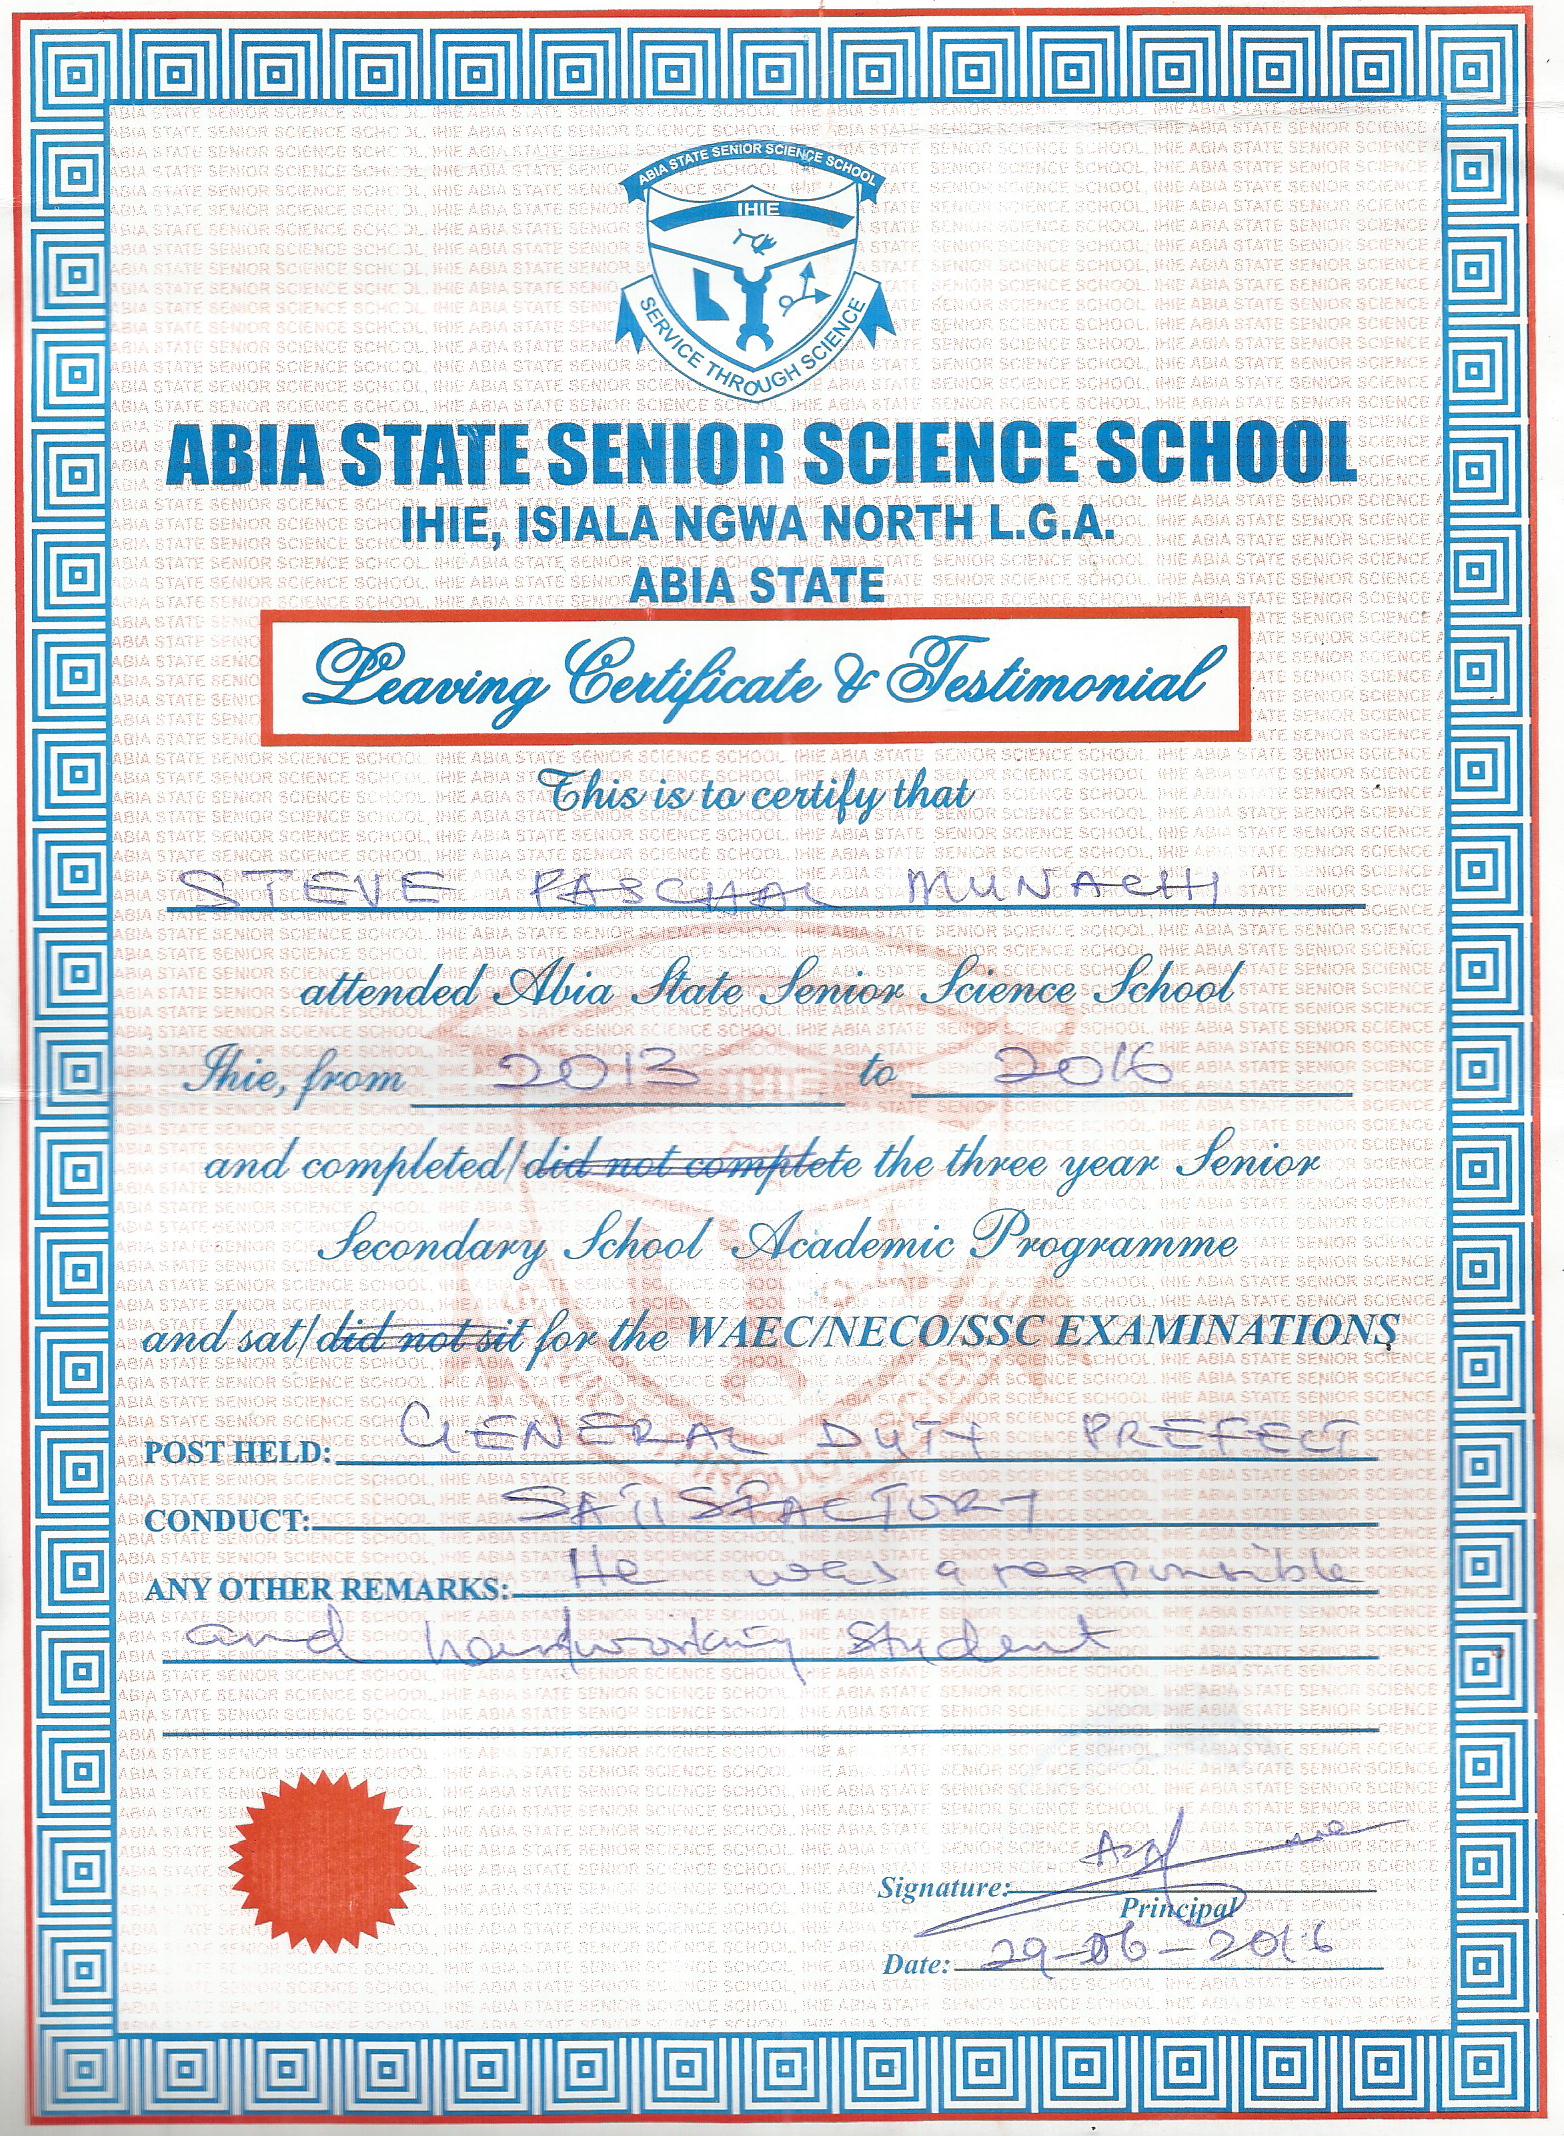 ABIA STATE SENIOR SCIENCE SCHOOL
IHIE
SERVICE THROUGH SCIENCE
ABIA STATE SENIOR SCIENCE SCHOOL
IHIE, ISIALA NGWA NORTH L.G.A.
ABIA STATE
Leaving Certificate & Testimonial
This is to certify that
STEVE PASCHAL MUNACHI
attended Abia State Senior Science School
Ihie, from 2013 to 2016
and completed/did not complete the three year Senior
Secondary School Academic Programme
and sat/did not sit for the WAEC/NECO/SSC EXAMINATIONS
POST HELD: GENERAL DUTY PREFECT
CONDUCT: SATISFACTORY
ANY OTHER REMARKS: He was a responsible
and hardworking student
Signature:
Principal
Date: 29-06-2016